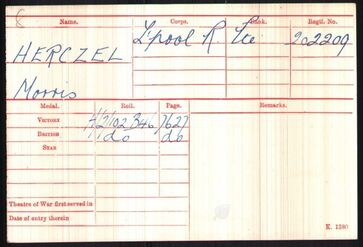 Name. Corps. Rank. Regtl. No.
HERCZEL L'pool R. Pte 202209
Morris
Medal. Roll. Page. Remarks.
VICTORY H/2/102 B46 7627
BRITISH do do
STAR
Theatre of War first served in
Date of entry therein
K. 1380